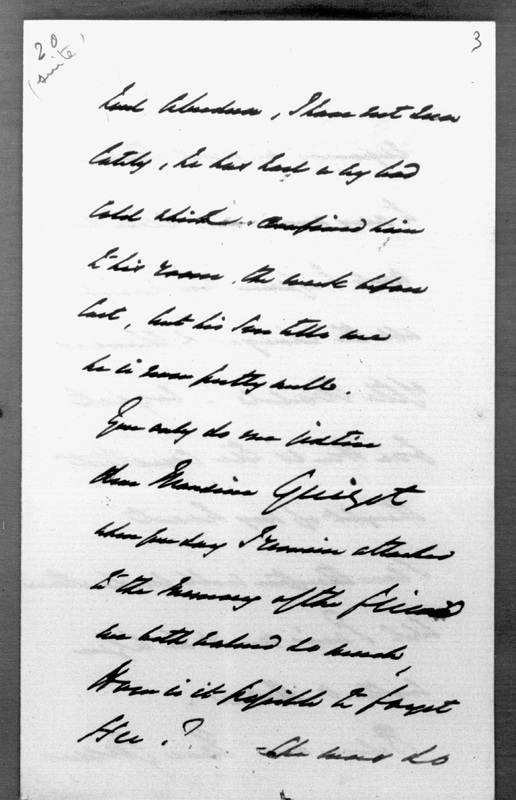 20
(suite)
3
Lord Aberdeen, I have not seen
lately, he has had a very bad
cold which confined him
to his room the week before
last, but his Son tells me
he is now pretty well.
You only do me justice
dear Monsieur Guizot
when you say I remain attached
to the memory of the friend
we both valued so much,
How is it possible to forget
Her? - She was so